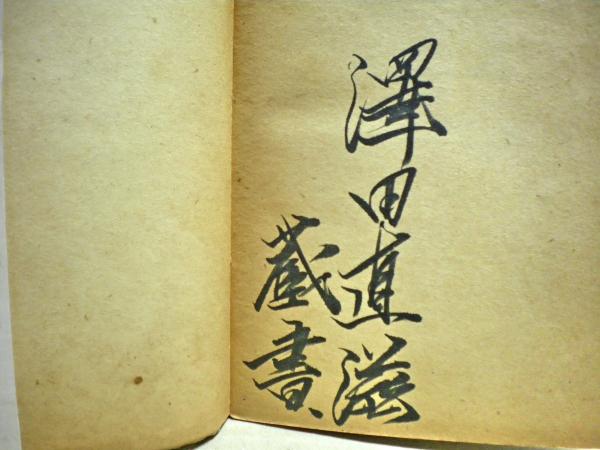 澤田直滋
蔵書